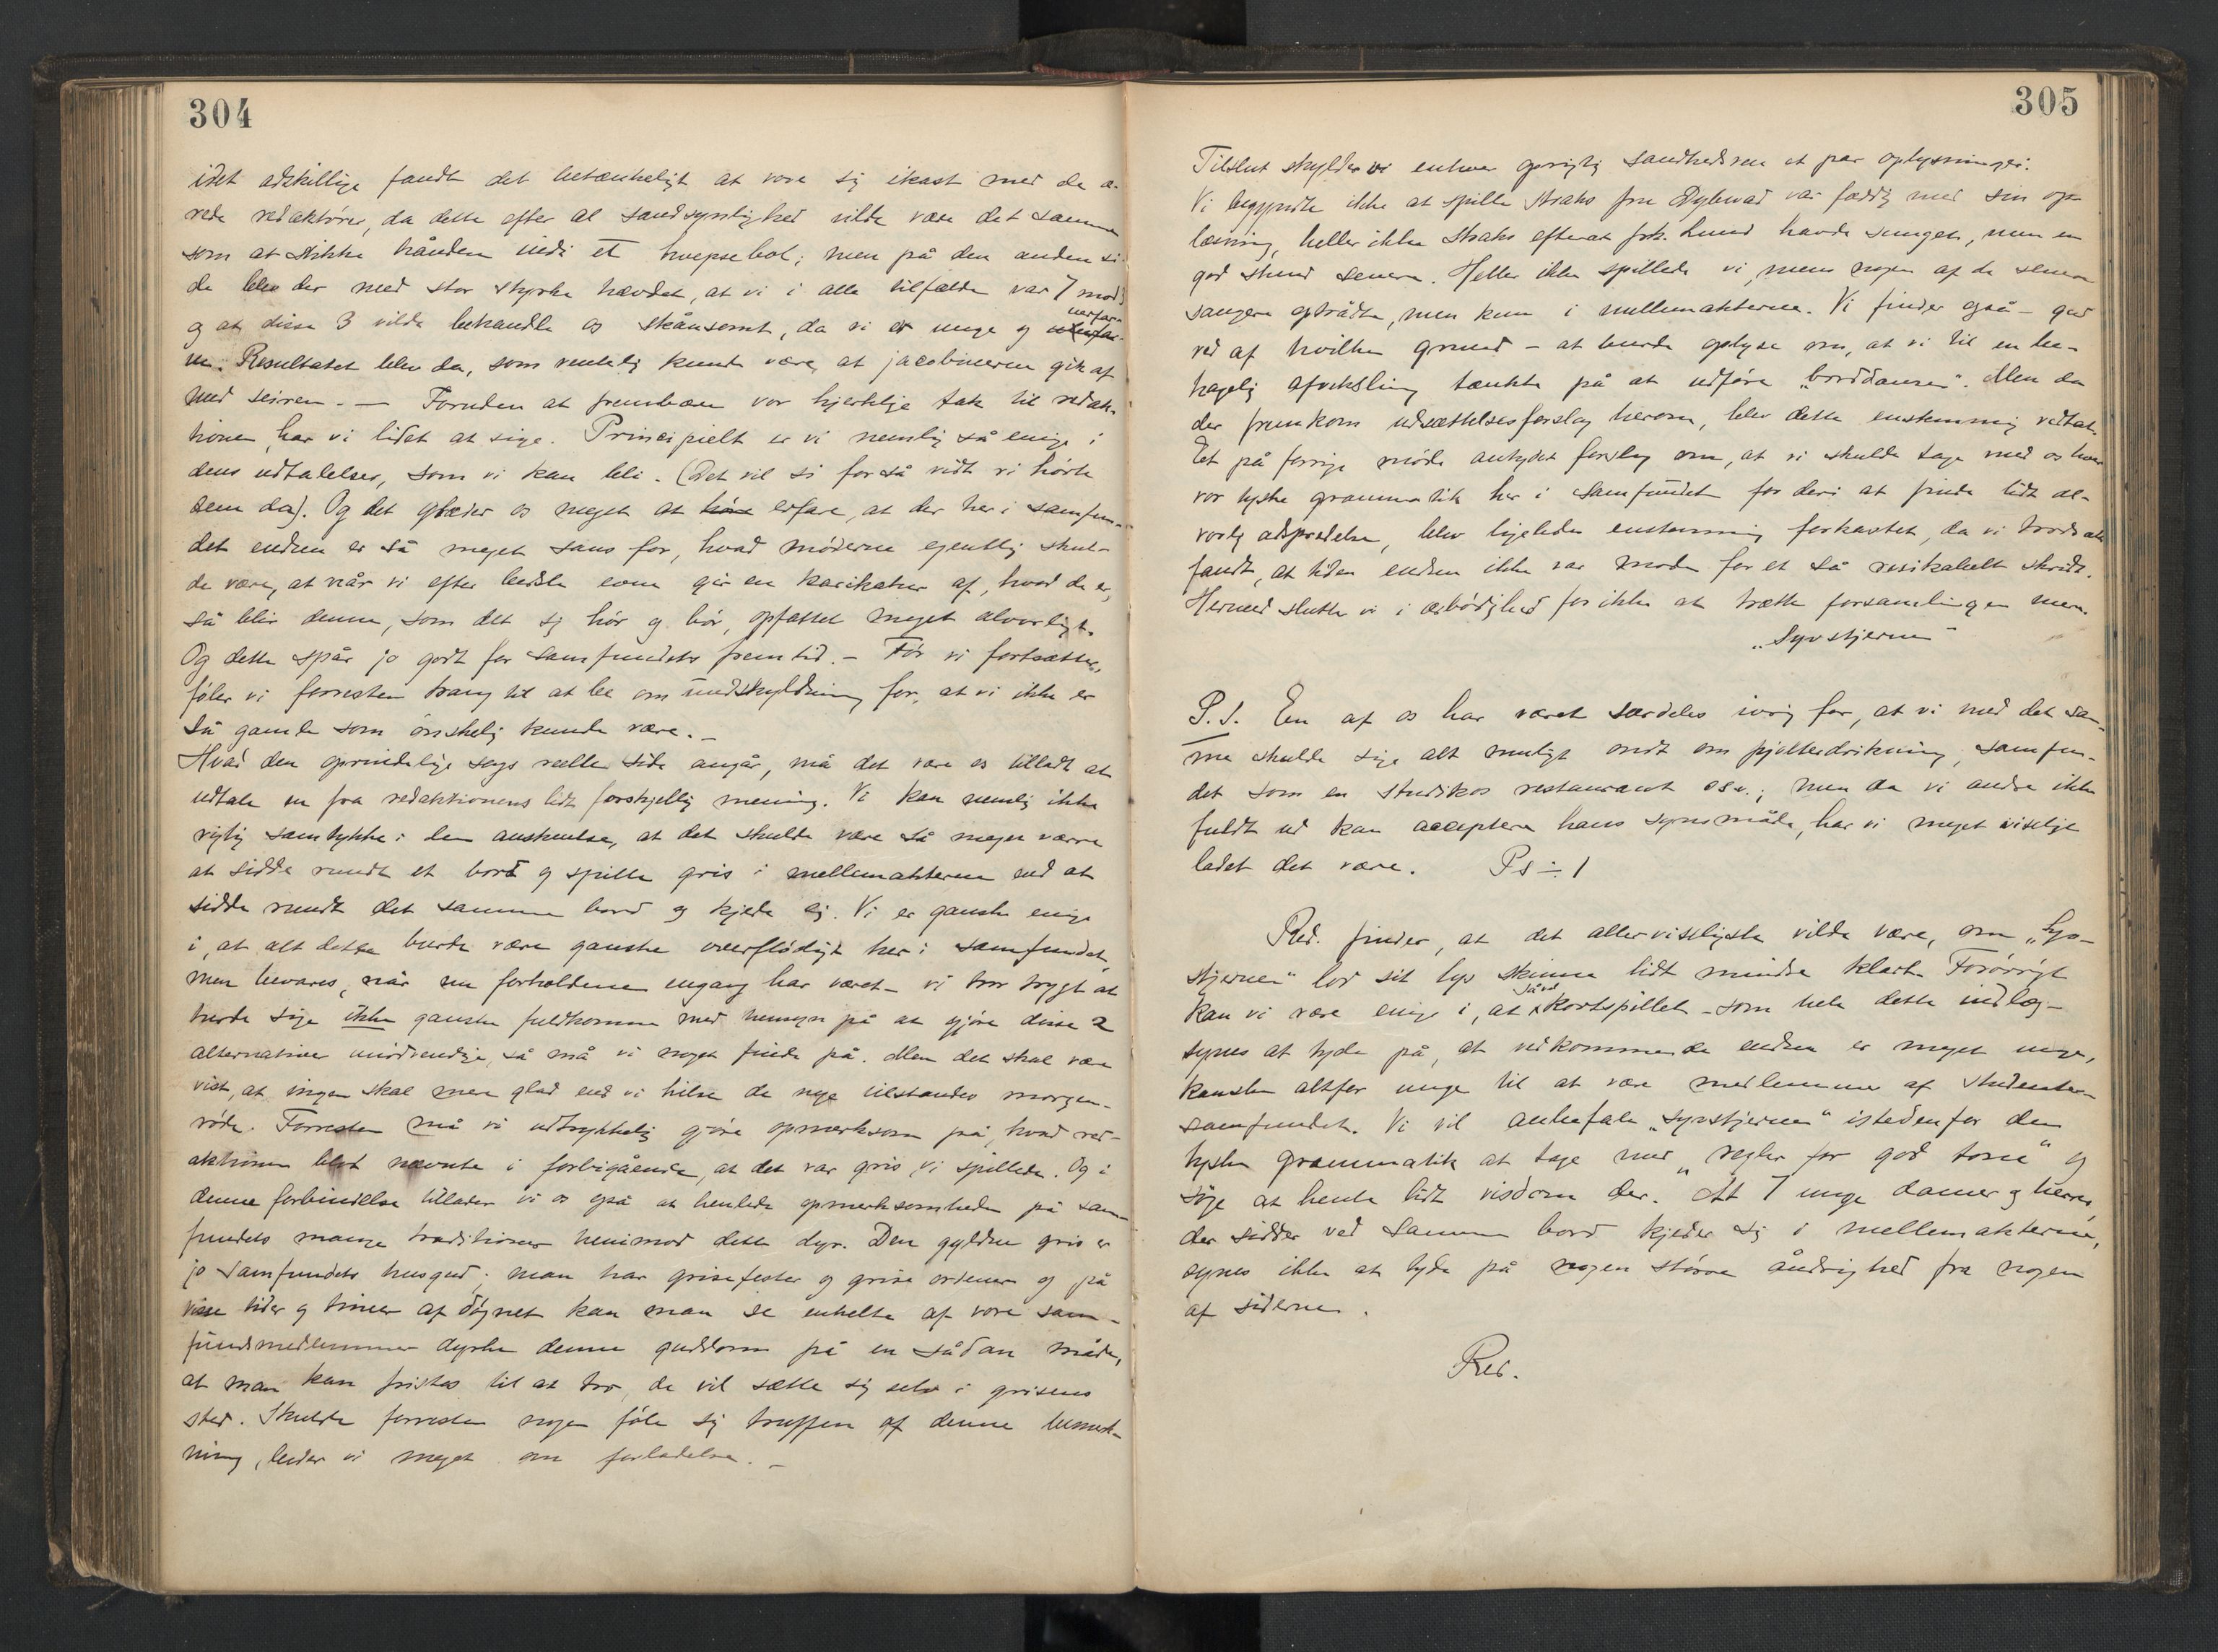 304
idet adskillige fandt det betænkeligt at vove sig ikast med de æ-
rede redaktører, da dette efter al sandsynlighed vilde være det samme
som at stikke hånden indi et hvepsebol; men på den anden si-
de blev der med stor styrke hævdet, at vi i alle tilfælde var 7 mod 3
og at disse 3 vilde behandle os skånsomt, da vi er unge og uerfar-
ne. Resultatet blev da, som rimelig kunde være, at jacobinerne gik af
med seiren. — Foruden at frembære vor hjertelige tak til redak-
tionen, har vi lidet at sige. Principielt er vi nemlig så enige i
dens udtalelser, som vi kan bli. (Det vil si forså vidt vi hørte
dem da). Og det glæder os meget at høre erfare, at der her i samfun-
det endnu er så meget sans for, hvad møderne egentlig skul-
de være, at når vi efter bedste evne gir en karikatur af, hvad de er,
så blir denne, som det sig hør og bør, opfattet meget alvorligt.
Og dette spår jo godt for samfundets fremtid. — Før vi fortsætter,
føler vi forresten trang til at be om undskyldning for, at vi ikke er
så gamle som ønskelig kunde være. —
Hvad den oprindelige sags reelle side angår, må det være os tilladt at
udtale en fra redaktionens lidt forskjellig mening. Vi kan nemlig ikke
rigtig samtykke i den anskuelse, at det skulde være så meget værre
at sidde rundt et bord og spille gris i mellemakterne end at
sidde rundt det samme bord og kjede sig. Vi er ganske enige
i, at alt dette burde være ganske overflødigt her i samfundet,
men bevares, når nu forholdene engang har været – vi tror trygt at
burde sige ikke ganske fuldkomne med hensyn på at gjøre disse 2
alternativer unødvendige, så må vi noget finde på. Men det skal være
vist, at ingen skal mere glad end vi hilse de nye tilstandes morgen-
røde. Forresten må vi udtrykkelig gjøre opmerksom på, hvad red-
aktionen blot nævnte i forbigående, at det var gris, vi spillede. Og i
denne forbindelse tillader vi os også at henlede opmerksomheden på sam-
fundets mange traditioner henimod dette dyr. Den gyldne gris er
jo samfundets husgud; man har grisefester og grise ordener og på
visse tider og timer af døgnet kan man se enkelte af vore sam-
fundsmedlemmer dyrke denne guddom på en sådan måde,
at man kan fristes til at tro, de vil sætte sig selv i grisens
sted. Skulde forresten nogen føle sig truffen af denne bemerk-
ning, beder vi meget om forladelse. —
305
Tilslut skylder vi enhver oprigtig sandhedsven et par oplysninger:
Vi begyndte ikke at spille straks fru Dybwad var færdig med sin op-
læsning, heller ikke straks efterat frk. Lund havde sunget, men en
god stund senere. Heller ikke spillede vi, mens nogen af de senere
sangere optrådte, men kun i mellemakterne. Vi finder også – gud
ved af hvilken grund – at burde oplyse om, at vi til en be-
hagelig afveksling tænkte på at udføre "borddansen". Men da
der fremkom udsættelsesforslag herom, blev dette enstemmig vedtat.
Et på forrige møde antydet forslag om, at vi skulde tage med os hver
vor tyske grammatik her i samfundet for deri at finde lidt al-
vorlig adspredelse, blev ligeledes enstemmig forkastet, da vi trods alt
fandt, at tiden endnu ikke var moden for et så risikabelt skridt.
Hermed slutter vi i ærbødighed for ikke at trætte forsamlingen mere.
"Syvstjernen"
P.S. En af os har været særdeles ivrig for, at vi med det sa-
me skulde sige alt muligt ondt om pjolterdrikning, samfun-
det som en studikos restaurant osv.; men da vi andre ikke
fuldt ud kan acceptere hans synsmåde, har vi meget viselige
ladet det være. Ps ÷ 1
Red. finder, at det allerviseligste vilde være, om "Syv-
stjernen" lod sit lys skinne lidt mindre klart. Forøvrigt
kan vi være enige i, at såvel kortspillet – som hele dette indlæg –
synes at tyde på, at vedkommende endnu er meget unge,
kanske altfor unge til at være medlemmer af Studenter-
samfundet. Vi vil anbefale "syvstjernen" istedenfor den
tyske grammatik at tage med "regler for god tone" og
søge at hente lidt visdom der. At 7 unge damer og herrer,
der sidder ved samme bord kjeder sig i mellemakterne,
synes ikke at tyde på nogen større åndrighed fra nogen
af siderne.
Red.